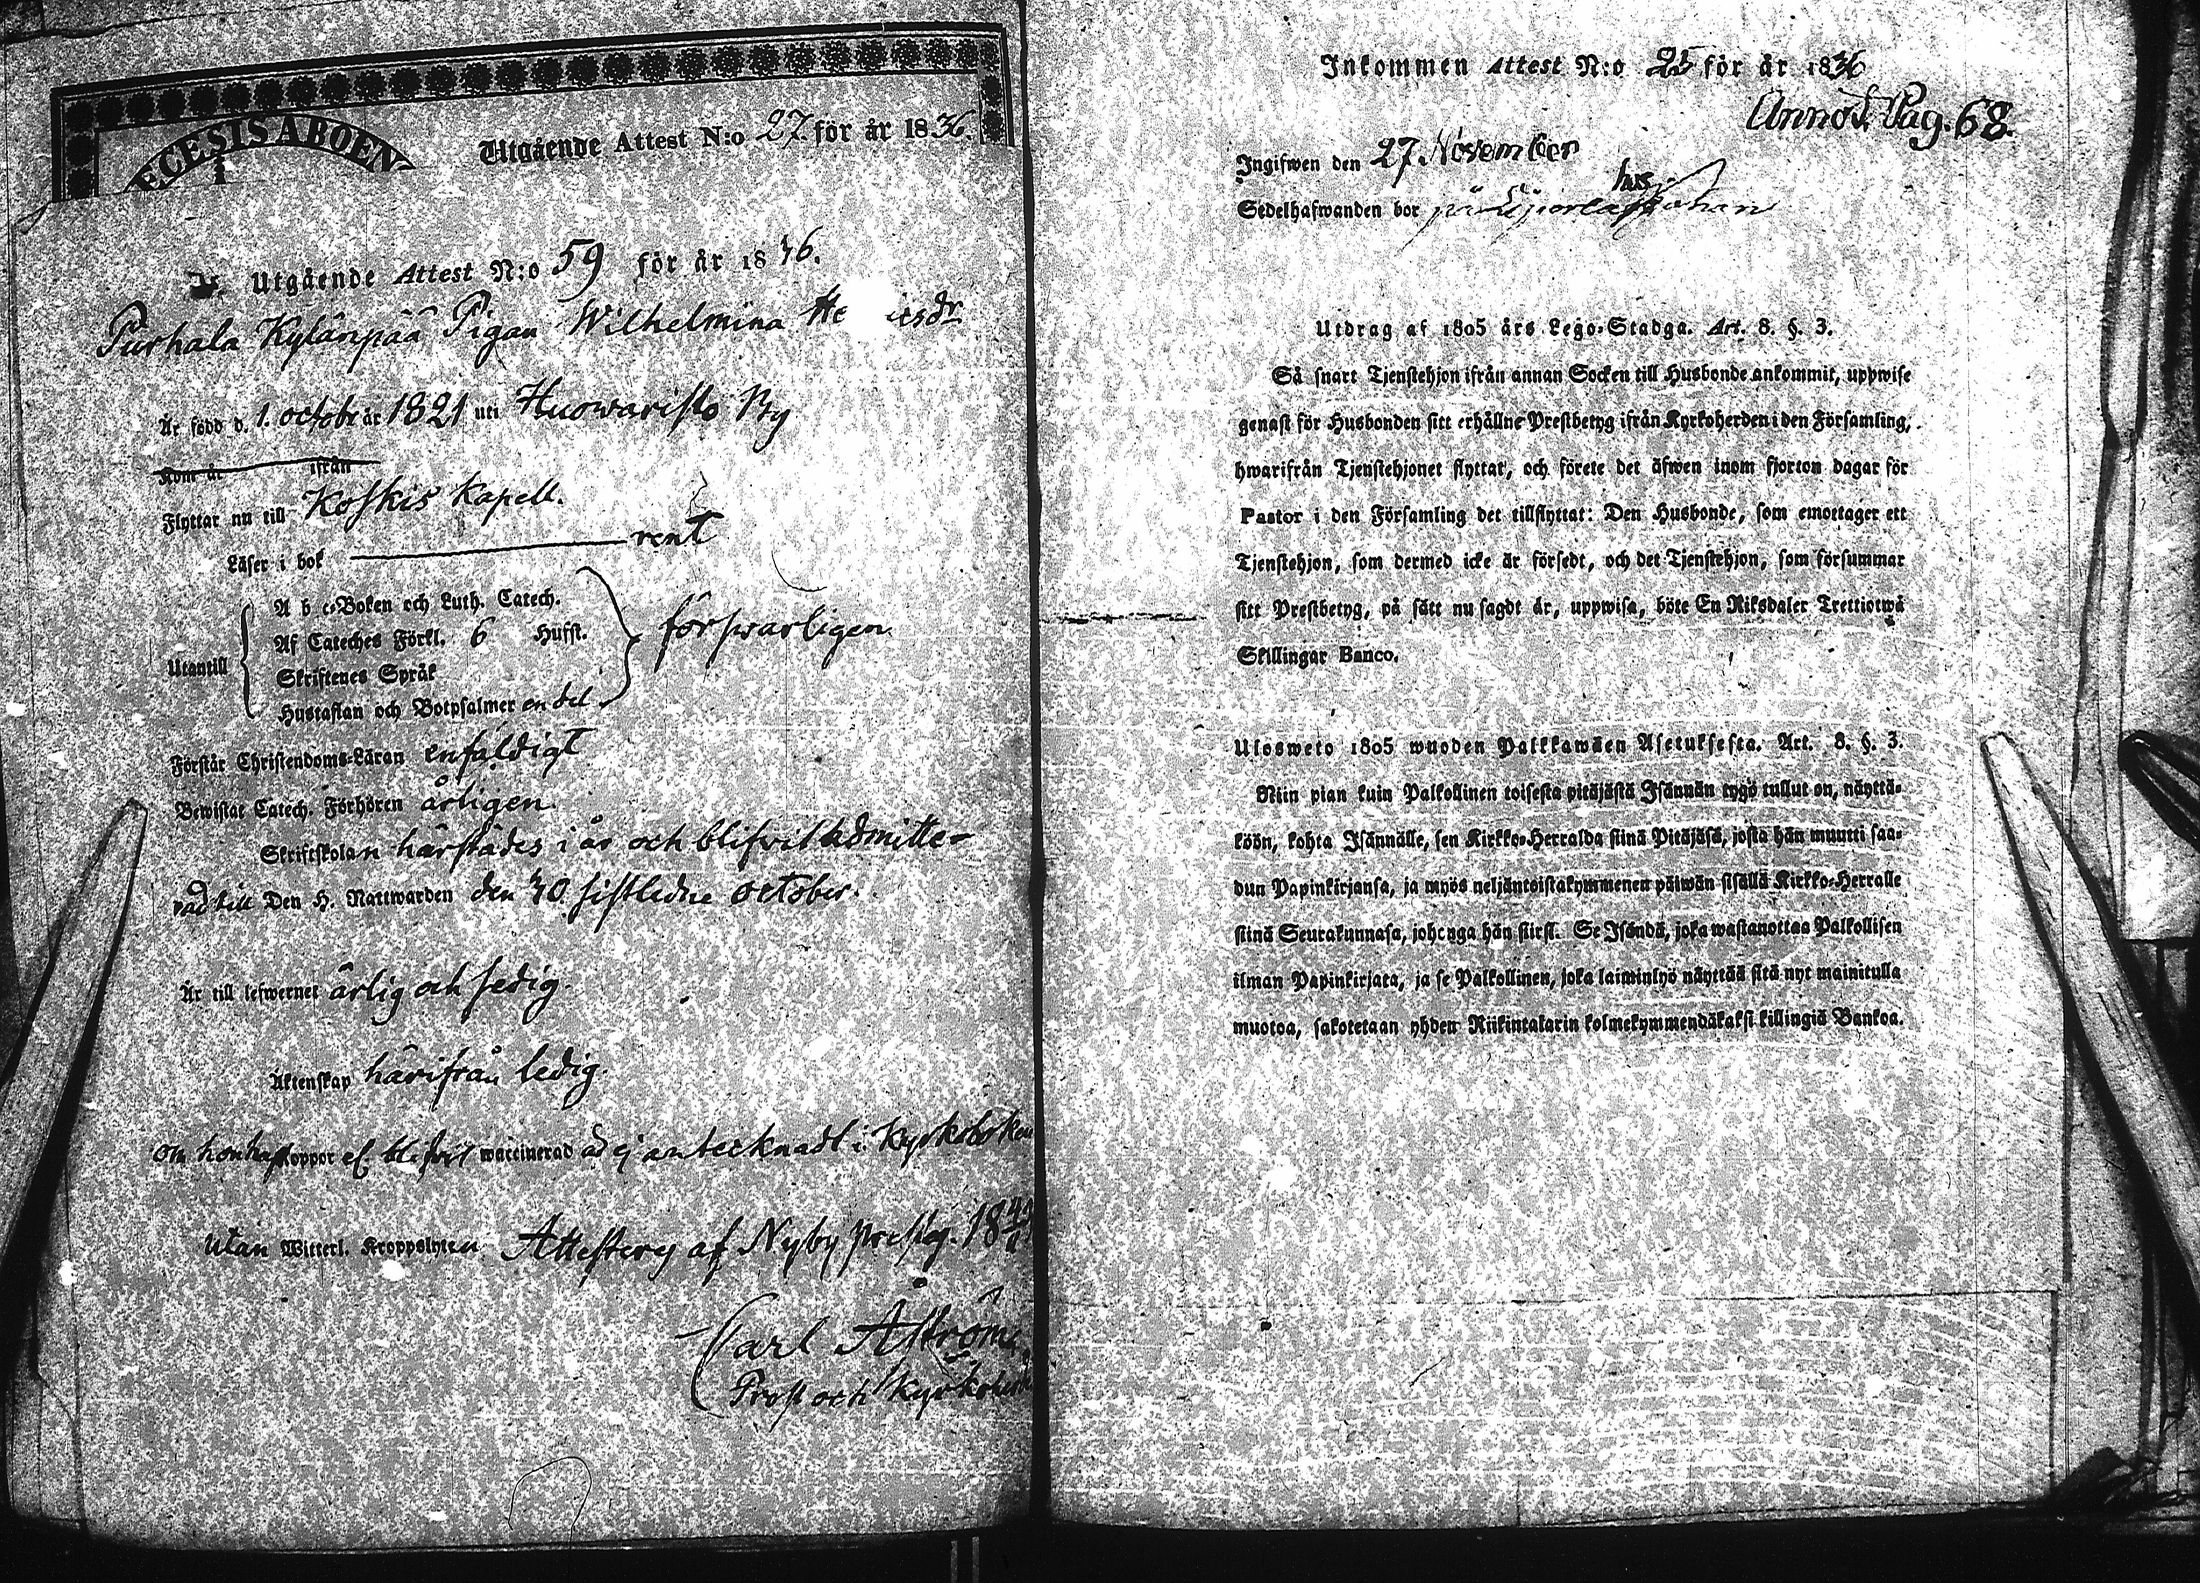 ECESIS ABOEN
Utgående Attest N:o 27. för år 1836.
Utgående Attest N:o 59 för år 1836.
Purhala Kylänpää Pigan Wilhelmina
Är född d. 1. octobr år 1821 uti Huowaristo By
Kom år ifrån
Flyttar nu till Koskis Kapell.
Läser i bok rent
Utantill
A b c-Boken och Luth. Catech.
Af Cateches Förkl. 6 Hufst.
Skriftenes Språk
Hustaflan och Botpsalmer en del
försvarligen
Förstår Christendoms-Läran enfäldigt
Bewistat Catech. Förhören årligen.
Skriftskolan härstädes i år och blifvit admitte-
rad till Den H. Nattwarden den 30 sistledne october.
Är till lefwernet ärlig och sedig.
Äktenskap härifrån ledig.
Om hon haft koppor el. blifvit waccinerad är ej antecknadt i Kyrkoboken
Utan Witterl. Kroppslyten Attesterg af Nyby prestg. 18
Carl Åström.
Prost och Kyrkoherde
Inkommen Attest N:o 25 för år 1836
Annot. Pag. 68.
Ingifwen den 27. November
Sedelhafwanden bor på
Utdrag af 1805 års Lego-Stadga. Art. 8. §. 3.
Så snart Tjenstehjon ifrån annan Socken till Husbonde ankommit, uppwise
genast för Husbonden sitt erhållne Prestbetyg ifrån Kyrkoherden i den Församling,
hwarifrån Tjenstehjonet flyttat, och förete det äfwen inom fjorton dagar för
Pastor i den Församling det tillflyttat: Den Husbonde, som emottager ett
Tjenstehjon, som dermed icke är försedt, och det Tjenstehjon, som försummar
sitt Prestbetyg, på sätt nu sagdt är, uppwisa, böte En Riksdaler Trettiotwå
Skillingar Banco.
Ulosweto 1805 wuoden Palkkawäen Asetuksesta. Art. 8. §. 3.
Niin pian kuin Palkollinen toisesta pitäjästä Isännän tygö tullut on, näyttä-
köön, kohta Isännälle, sen Kirkko-Herralda siinä Pitäjäsä, josta hän muutti saa-
dun Papinkirjansa, ja myös neljäntoistakymmenen päiwän sisällä Kirkko-Herralle
siinä Seurakunnasa, johonga hän siirst. Se Isändä, joka wastanottaa Palkollisen
ilman Papinkirjata, ja se Palkollinen, joka laiminlyö näyttää sitä nyt mainitulla
muotoa, sakotetaan yhden Riikintalarin kolmekymmendäkaksi killingiä Bankoa.